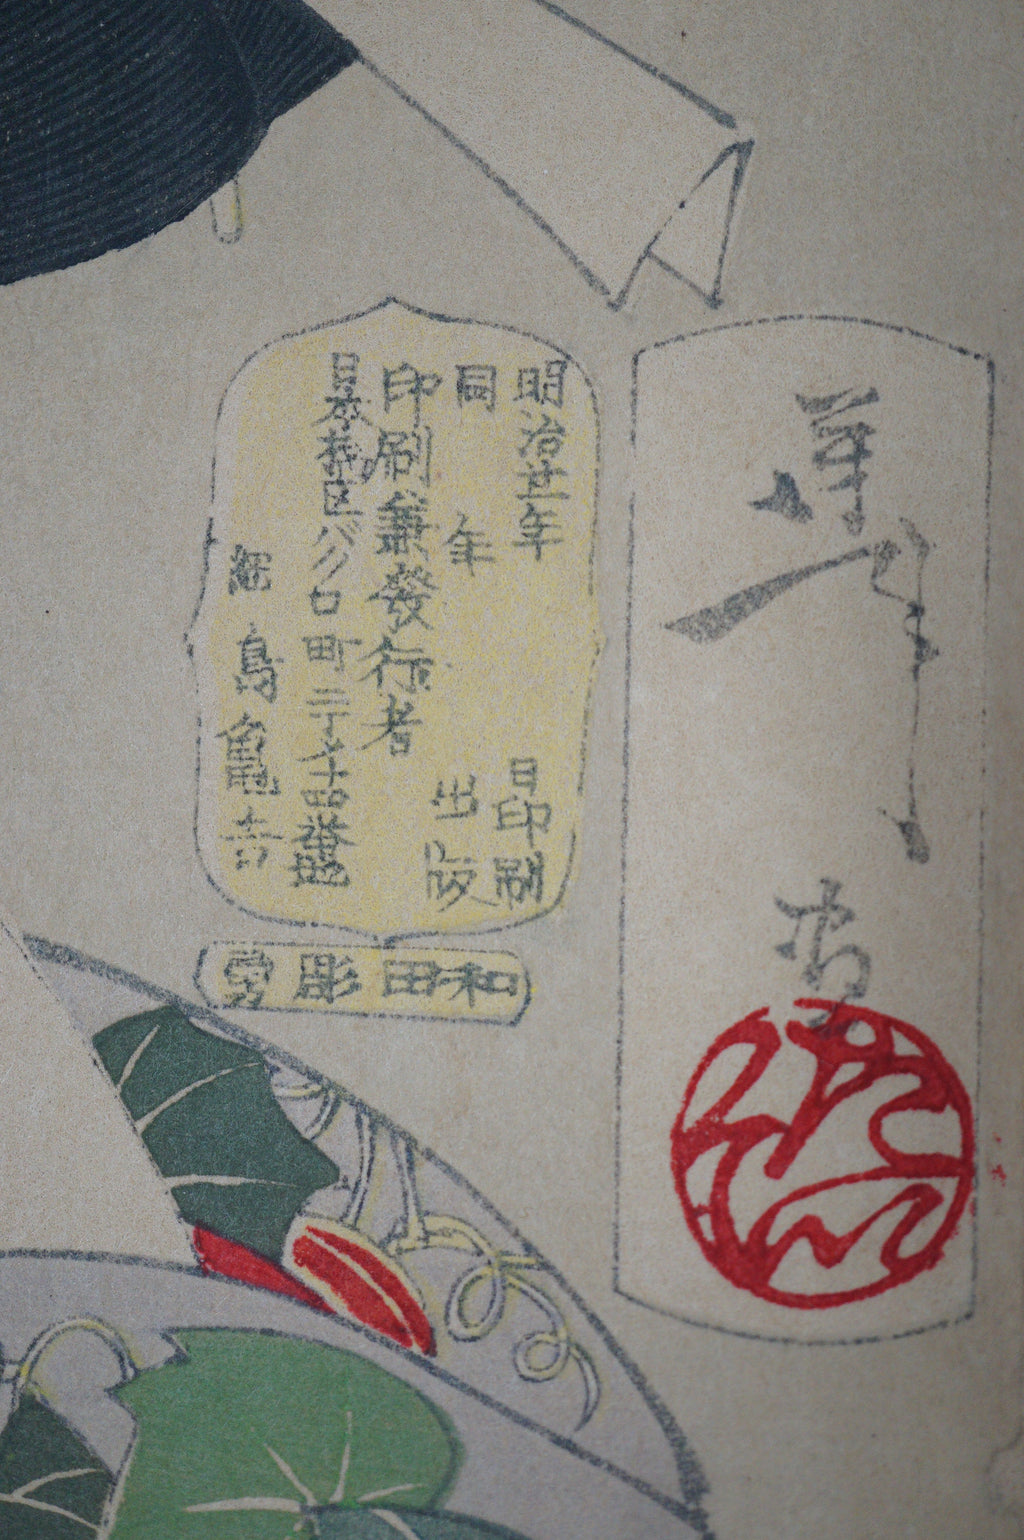 芳年画
明治廿一年 日印刷
同 年 出版
印刷兼發行者
日本橋区バクロ町二丁メ十四番地
綱島亀吉
和田彫勇